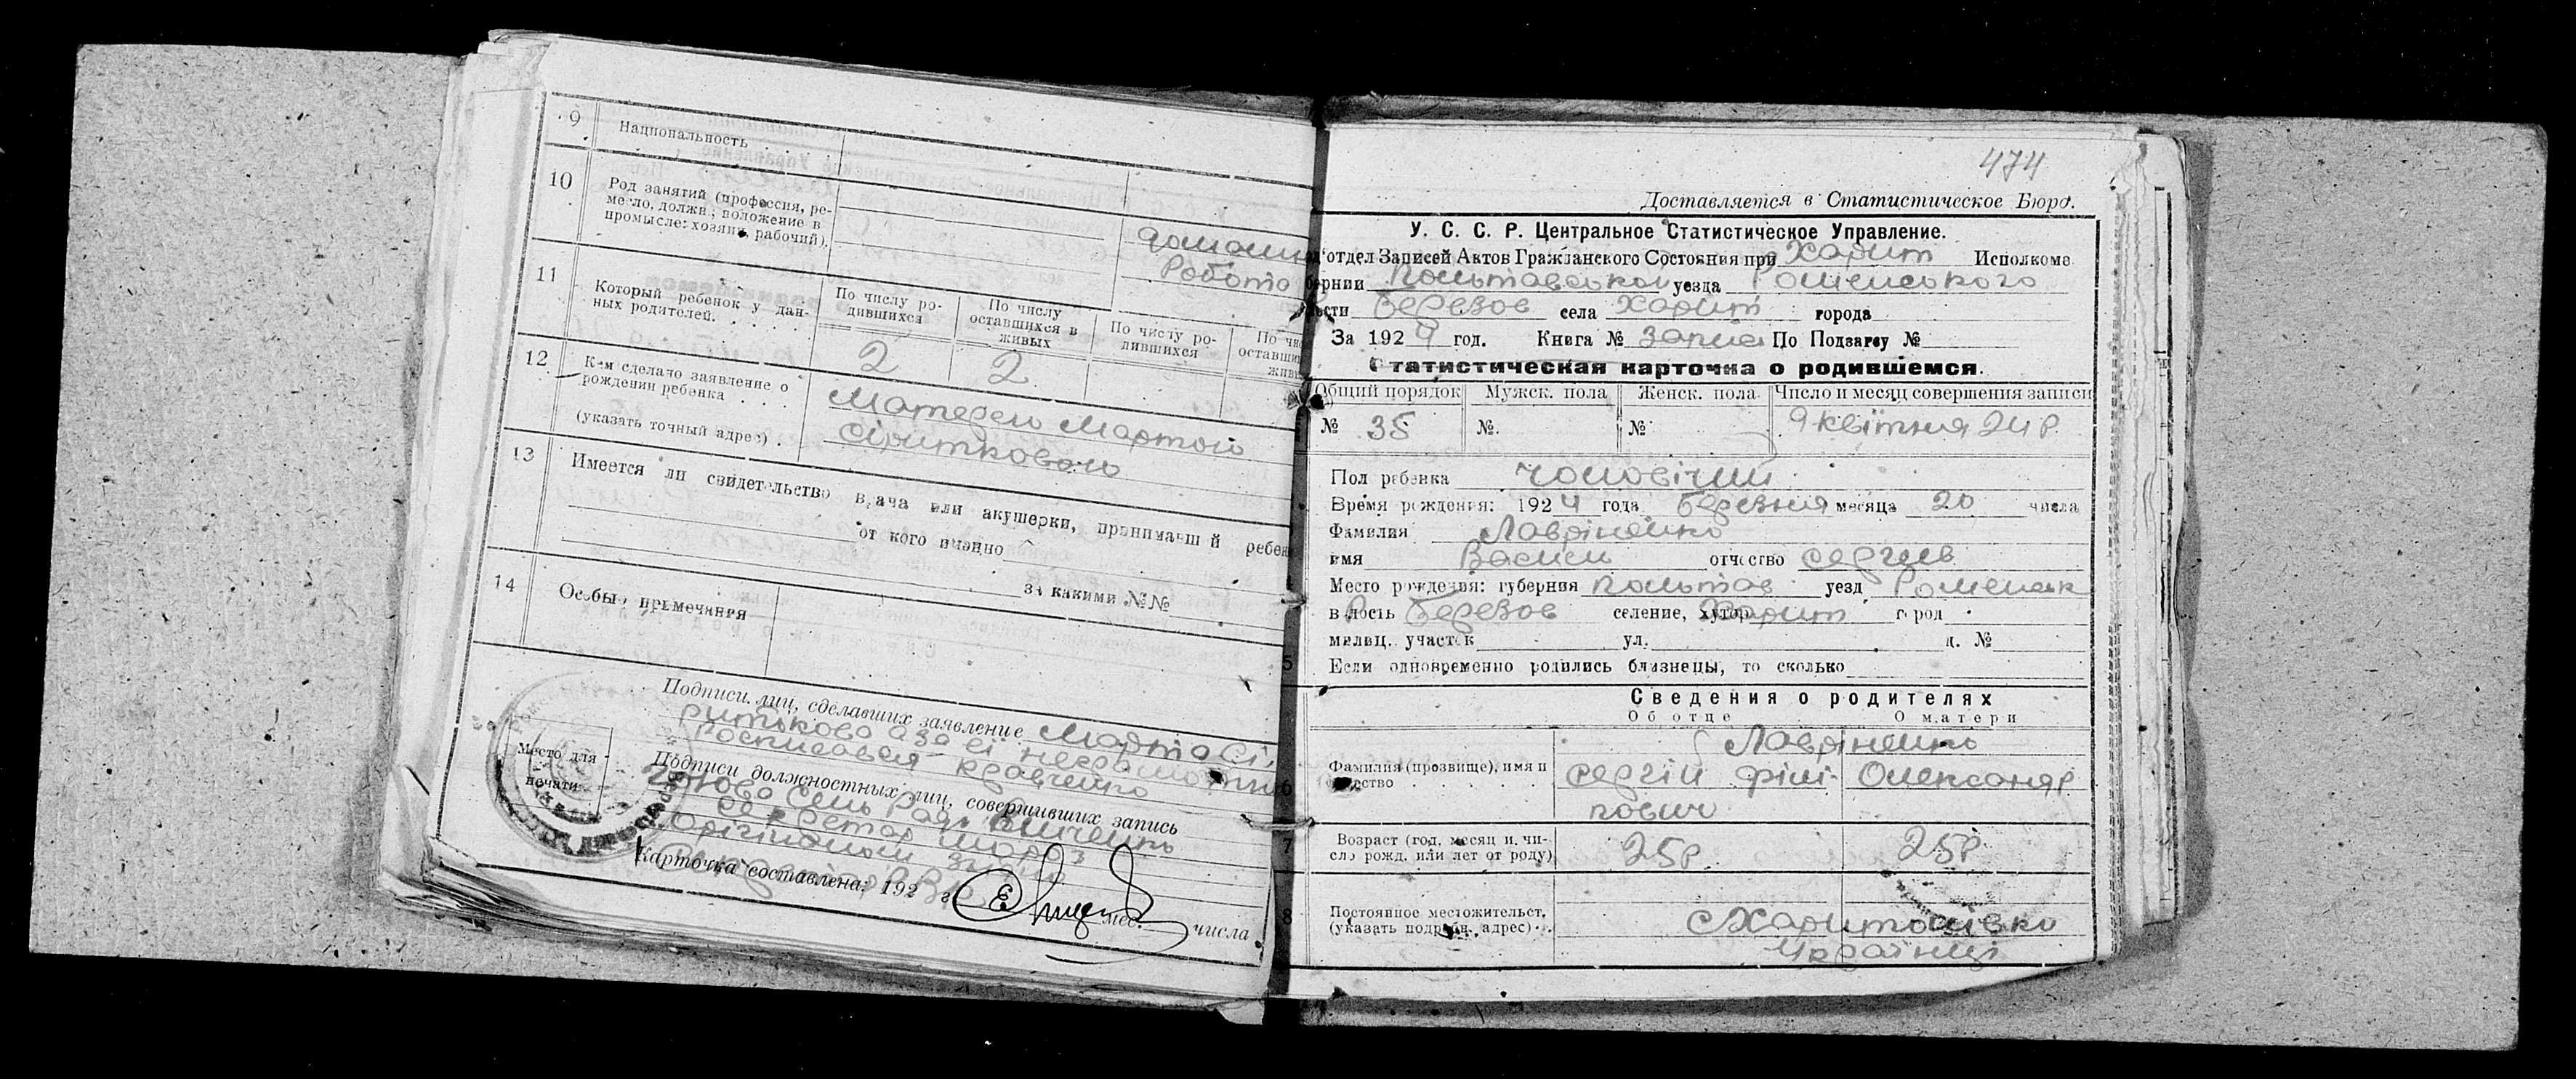 9 Национальность . . .
10 Род занятий (профессия, ре-
месло, должн., положение в
промысле: хозяин, рабочий).
Робота
11 Который ребенок у дан-
ных родителей. . . . .
По числу ро-
дившихся
По числу
оставшихся в
живых
По числу ро-
дившихся
2 2
12 Кем сделано заявление о
рождении ребенка . . .
(указать точный адрес) .
Матерью Мартой
Сіритковою
13 Имеется ли свидетельство врача или акушерки, принимавшей
от кого именно
за какими №№
14 Особые примечания
Подписи лиц, сделавших заявление Марта Сі-
риткова а за її неграмотн
росписався Кравченко
Подписи должностных лиц, совершивших запись
Голова Сіль Ради
Секретар Мороз
З оригіналом
Место для
печати
Карточка составлена: 192 г. мес. числа
474
Доставляется в Статистическое Бюро.
У. С. С. Р. Центральное Статистическое Управление.
отдел Записей Актов Гражданского Состояния при Харит Исполкоме
Полтавськой уезда Роменського
Березов села Харит города
За 1924 год. Книга № запис По Подзагсу №
Статистическая карточка о родившемся.
Общий порядок Мужск. пола Женск. пола Число и месяц совершения записи
№ 35 № № 9 квітня 24 р
Пол ребенка чоловічий
Время рождения: 1924 года Березня месяца 20 числа
Фамилия Лавріненко
имя Васил отчество Сергієв
Место рождения: губерния Польтав уезд Роменськ
волость Березов селение, хутор Харит город
милиц. участок ул. д. №
Если одновременно родились близнецы, то сколько
Сведения о родителях
Об отце О матери
Лавріненко
Фамилия (прозвище), имя и
Сергій Філі- Олександр
пович
7 Возраст (год, месяц и чи-
сло рожд. или лет от роду)
25р 25р
8 Постоянное местожительст.
(указать подробн. адрес) . .
с Харитонівка
Українці